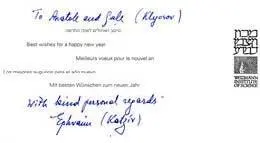 To Anatole and Gale (Klyosov)
Best wishes for a happy new year
Meilleurs voeux pour le nouvel an
Los mejores augurios para el año nuevo
Mit besten Wünschen zum neuen Jahr
With kind personal regards
Ephraim (Katzir)
WEIZMANN
INSTITUTE
OF SCIENCE